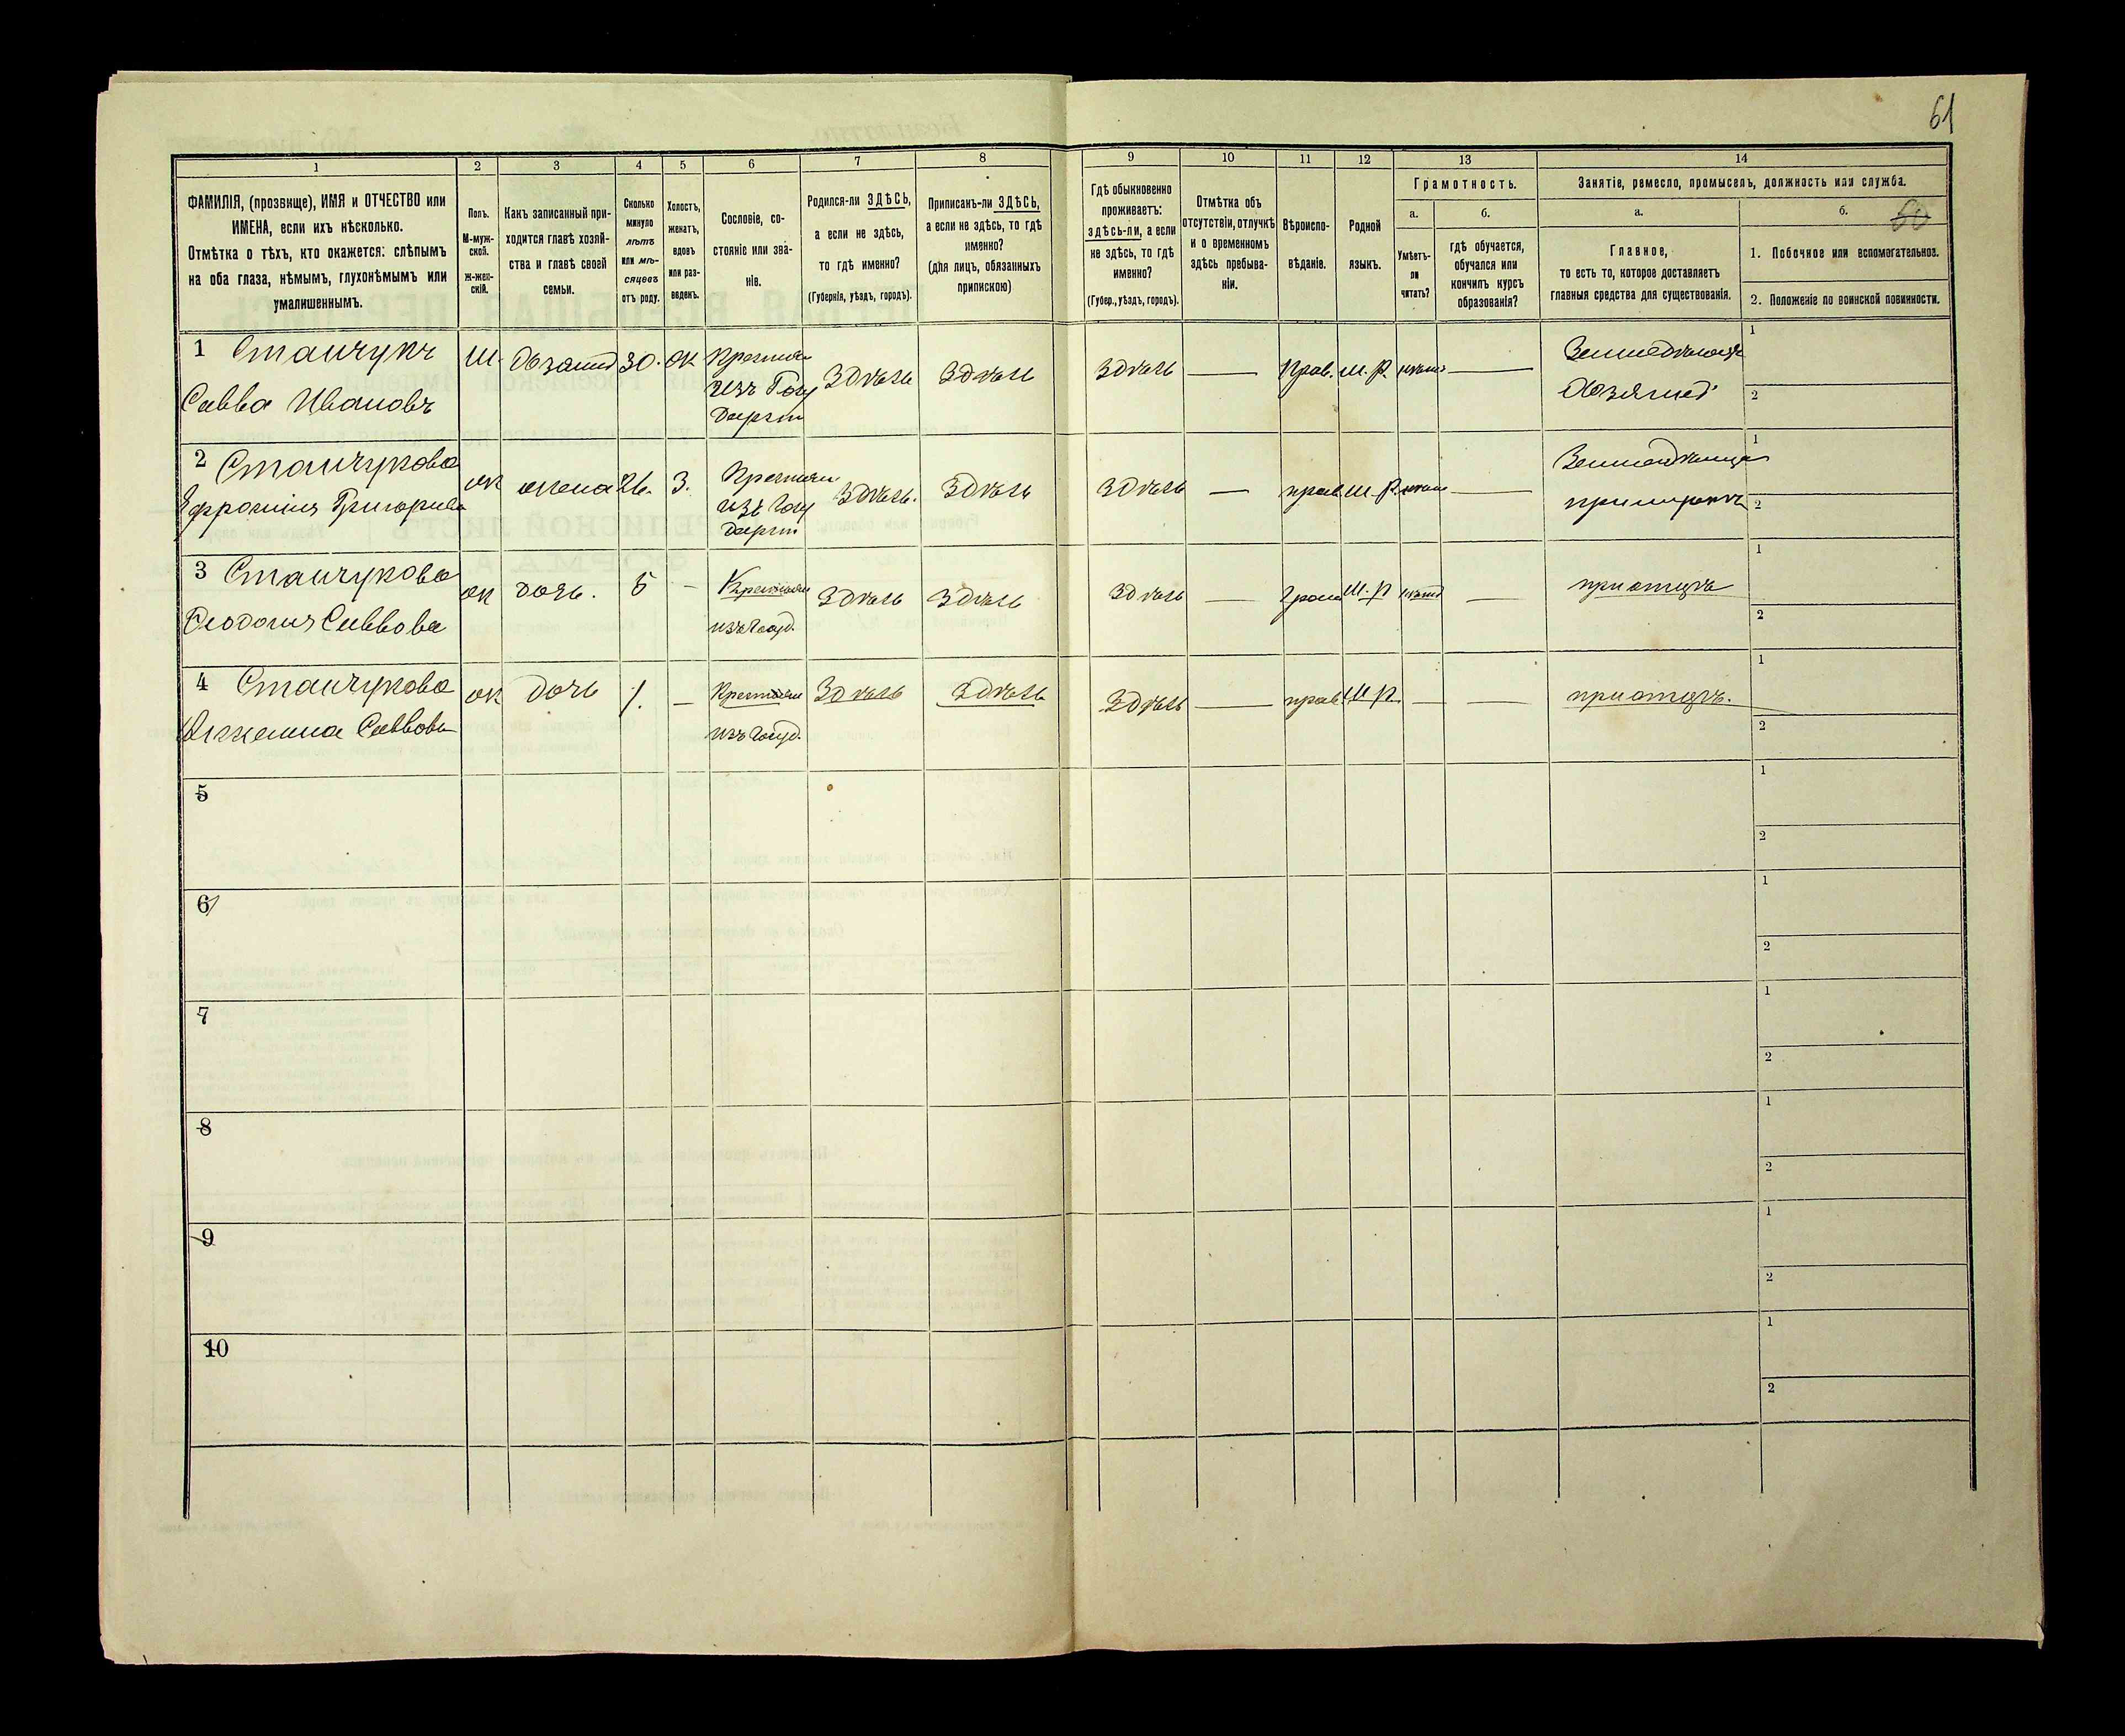 61
1 2 3 4 5 6 7 8 9 10 11 12 13 14
ФАМИЛІЯ, (прозвище), ИМЯ и ОТЧЕСТВО или
ИМЕНА, если ихъ нѣсколько.
Отмѣтка о тѣхъ, кто окажется: слѣпымъ
на оба глаза, нѣмымъ, глухонѣмымъ или
умалишеннымъ.
Полъ.
М-муж-
ской.
ж-жен-
скій.
Какъ записанный при-
ходится главѣ хозяй-
ства и главѣ своей
семьи.
Сколько
минуло
лѣтъ
или мѣ-
сяцевъ
отъ роду.
Холостъ,
женатъ,
вдовъ
или раз-
веденъ.
Сословіе, со-
стояніе или зва-
ніе.
Родился-ли ЗДѢСЬ,
а если не здѣсь,
то гдѣ именно?
(Губернія, уѣздъ, городъ).
Приписанъ-ли ЗДѢСЬ,
а если не здѣсь, то гдѣ
именно?
(для лицъ, обязанныхъ
припискою)
Гдѣ обыкновенно
проживаетъ:
здѣсь-ли, а если
не здѣсь, то гдѣ
именно?
(Губер., уѣздъ, городъ).
Отмѣтка объ
отсутствіи, отлучкѣ
и о временномъ
здѣсь пребыва-
ніи.
Вѣроиспо-
вѣданіе.
Родной
языкъ.
Грамотность.
а.
Умѣетъ-
ли
читать?
б.
гдѣ обучается,
обучался или
кончилъ курсъ
образованія?
Занятіе, ремесло, промыселъ, должность или служба.
а.
Главное,
то есть то, которое доставляетъ
главныя средства для существованія.
б. 60
1. Побочное или вспомогательное.
2. Положеніе по воинской повинности.
1 Станчукъ м. 30. ж Здѣсь Здѣсь Здѣсь — прав. м. р. нѣтъ —
Савва Ивановъ
изъ Госу
1
2
2 Станчукова ж жена 26. з. Здѣсь. Здѣсь Здѣсь — прав. м. р. —
изъ Госу
1
2
3 Станчукова ж дочь. 5 — Здѣсь Здѣсь Здѣсь — м. р нѣтъ — при отцѣ
Ѳеодосия Саввова изъ Госуд.
1
2
4 Станчукова ж дочь 1. — Здѣсь Здѣсь Здѣсь — прав. м. р. — — при отцѣ.
Саввова изъ Госуд.
1
2
5
1
2
6
1
2
7
1
2
8
1
2
9
1
2
10
1
2